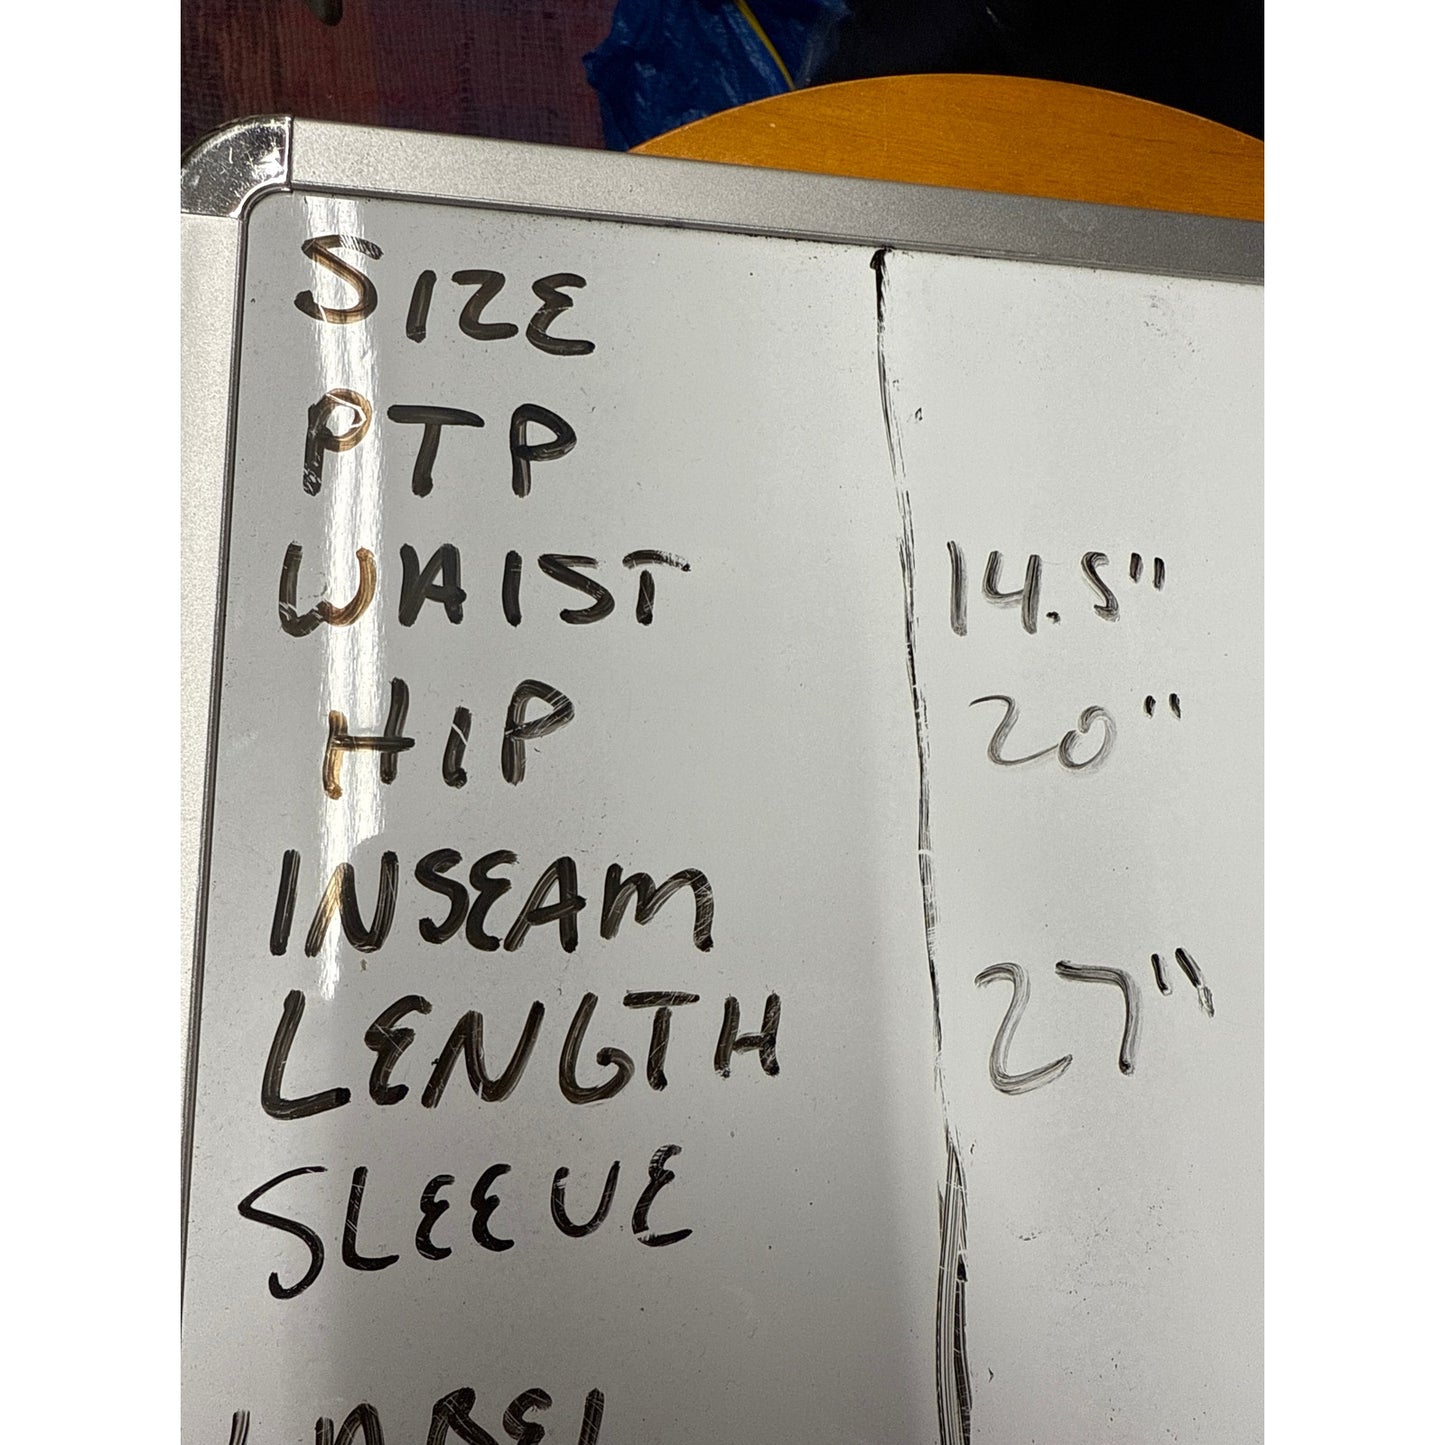 SIZE
PTP
WAIST 14.5"
HIP 20"
INSEAM
LENGTH 27"
SLEEVE
LABEL